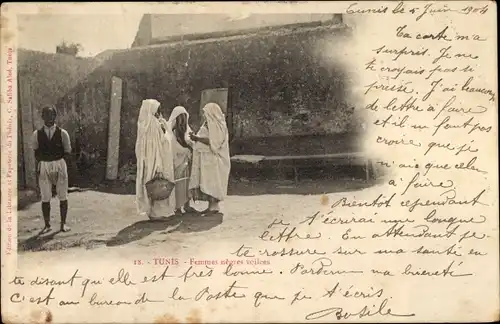 Tunis le 5 Juin 1904
Ta carte m'a
surpris. Je ne
te croyais pas si
presse. J'ai beaucoup
de lettre à faire
et il ne faut pas
croire que je
n'ais que cela
à faire
Bientot cependant
je t'écrirai une longue
lettre. En attendant je
te rassure sur ma santé en
te disant qu'elle est très bonne. Pardonne ma brieveté
C'est au bureau de la Poste que je t'écris
Basile
12. - TUNIS. - Femmes nègres voilées
Edition de la Librairie et Papeterie de l'habib, C. Sadha Abd, Tunis